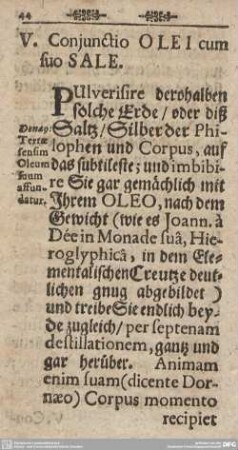 44
V. Conjunctio OLEI cum
suo SALE.
PUlverisire derohalben
solche Erde / oder diß
Saltz / Silber der Phi-
losophen und Corpus, auf
das subtileste; und imbibi-
re Sie gar gemächlich mit
Ihrem OLEO, nach dem
Gewicht (wie es Joann. à
Dée in Monade suâ, Hie-
roglyphicâ, in dem Ele-
mentalischen Creutze deut-
lichen gnug abgebildet)
und treibe Sie endlich bey-
de zugleich / per septenam
destillationem, gantz und
gar herüber. Animam
enim suam (dicente Dor-
næo) Corpus momento
recipiet
Donaq;
Terræ
sensim
Oleum
suum
affun-
datur.